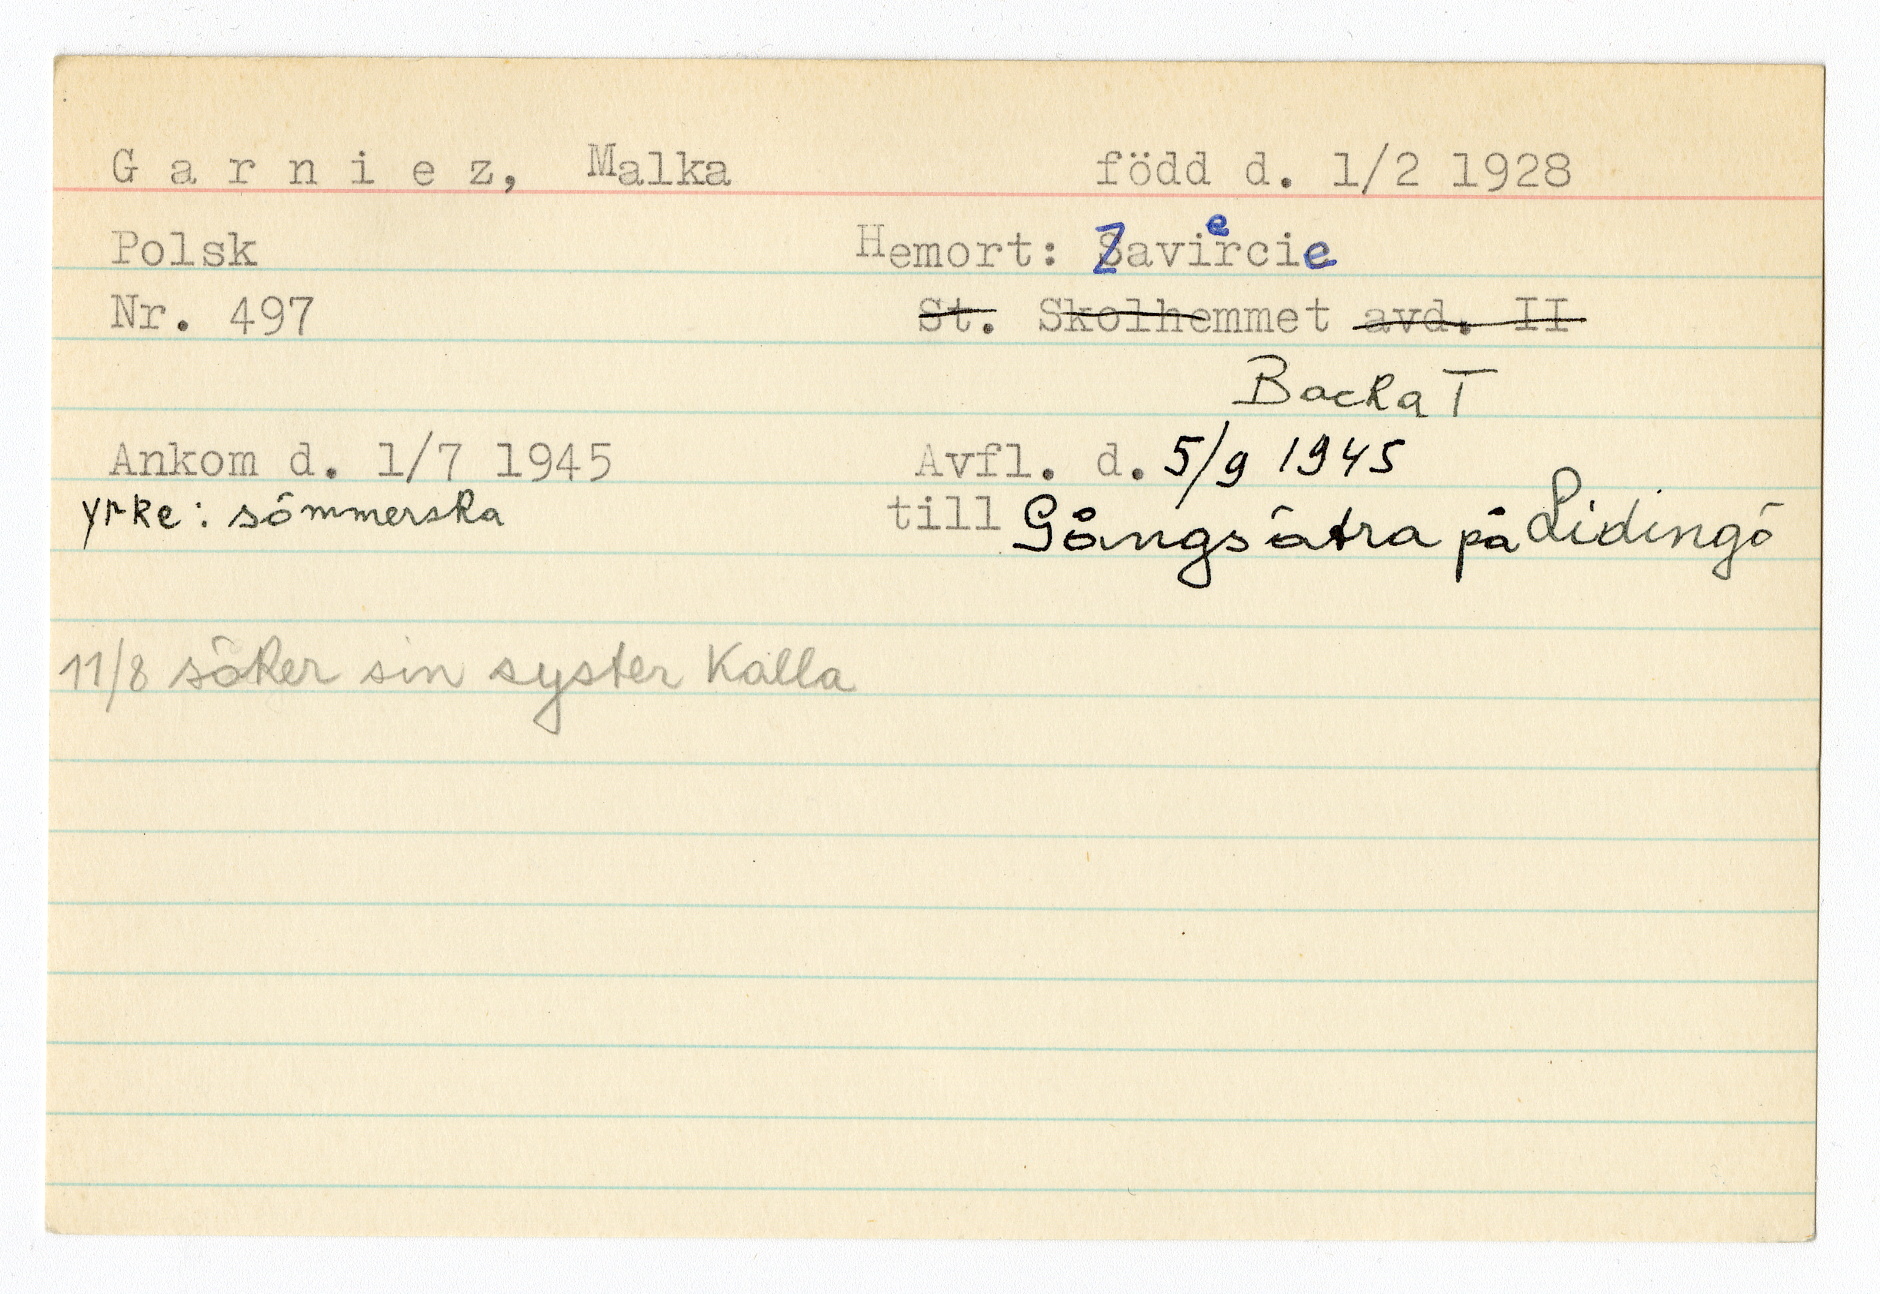 Garniez, Malka född d. 1/2 1928
Polsk Hemort: Zaviercie
Nr. 497 St. Skolhemmet avd. II
Backa T
Ankom d. 1/7 1945 Avfl. d. 5/9 1945
yrke: sömmerska till Gångsätra på Lidingö
11/8 söker sin syster Kalla